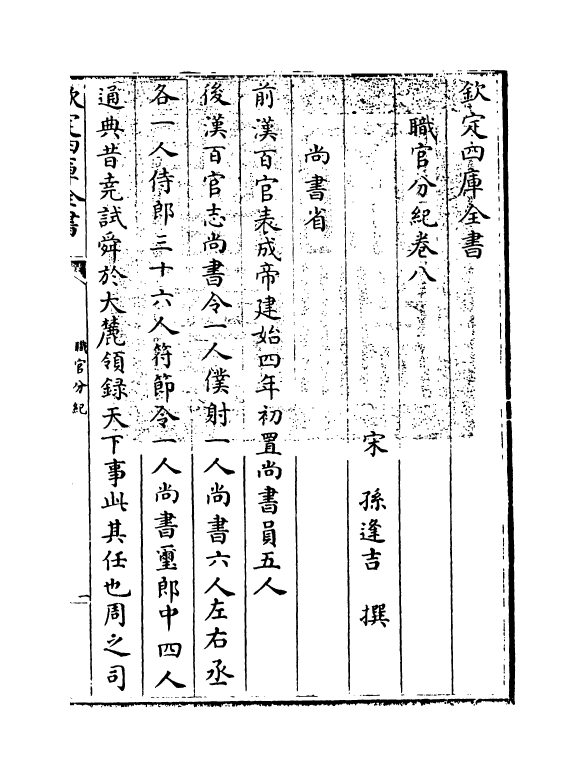 欽定四庫全書
職官分紀卷八
宋 孫逢吉 撰
尚書省
前漢百官表成帝建始四年初置尚書員五人
後漢百官志尚書令一人僕射一人尚書六人左右丞
各一人侍郎三十六人符節令一人尚書璽郎中四人
通典昔堯試舜於大麓領錄天下事此其任也周之司
欽定四庫全書
職官分紀
一